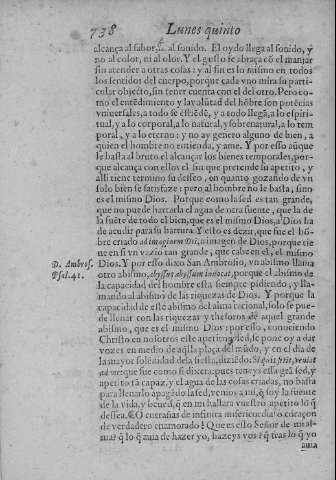 738 Lunes quinto
alcança al sabor, al sonido. El oydo llega al sonido, y
no al color, ni al olor. Y el gusto se abraça cō el manjar
sin atender a otras cosas: y al fin es lo mismo en todos
los sentidos del cuerpo, porque cada vno mira su parti-
cular objecto, sin tener cuenta con el del otro. Pero co-
mo el entēdimiento y la volūtad del hōbre son potēcias
vniuersales, a todo se estiēdē, y a todo llegā, a lo espiri-
tual, y a lo corporal, a lo natural, y sobrenatural, a lo tem
poral, y a lo eterno: y no ay genero alguno de bien, a
quien el hombre no entienda, y ame. Y por esso aunque
le basta al bruto el alcançar los bienes temporales, por-
que alcança con ellos el fin que pretende su apetito, y
alli tiene termino su desseo, en quanto gozando de vn
solo bien se satisfaze: pero al hombre no le basta, sino
es el mismo Dios. Porque como la sed es tan grande,
que no puede hartarla el agua de otra fuente, que la de
la fuēte de todo el bien, que es el mismo Dios, a Dios ha
de acudir para su hartura. Y esto es dezir, que fue el hō-
bre criado ad imaginem Dei, a imagen de Dios, porque tie
ne en si vn vazio tan grande, que cabe en el, el mismo
Dios. Y por esso dixo San Ambrosio, vn abismo llama
D. Ambros. Psal. 41.
otro abismo, abyssus abyssum inuocat, porque el abismo de
la capacidad del hombre esta siempre pidiendo, y lla-
mando al abismo de las riquezas de Dios. Y porque la
capacidad de este abismo del alma racional, solo se pue-
de llenar con las riquezas y thesoros de aquel grande
abismo, que es el mismo Dios: por esso, conociendo
Christo en nosotros este apetito, le pone oy a dar
vozes en medio de la plaça del mūdo, y en el dia de
la mayor solenidad de la fiesta, diziēdo: Si quis sitit, veniat
ad me: que fue como si dixera: pues teneys essa grā sed, y
apetito tā capaz, y el agua de las cosas criadas, no basta
para llenarlo apagādo la sed, venios a mi, q̄ soy la fuente
de la vida, y beued, q̄ en mi hallara vuestro apetito lo q̄
dessea. O entrañas de infinita misericordia! o coraçon
de verdadero enamorado! Que es esto Señor de mi al-
ma? q̄ lo q̄ auia de hazer yo, hazeys vos? q̄ tras lo q̄ yo
auia